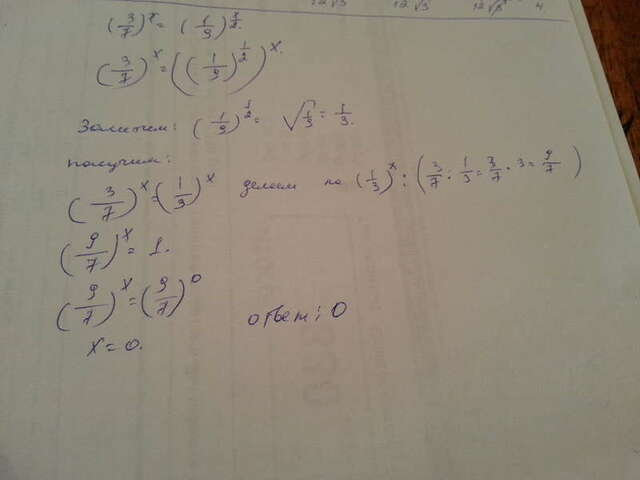 12√3 12√3 12√3 4
(3/7)^x = (1/9)^(x/2).
(3/7)^x = ((1/9)^(1/2))^x.
Заметим: (1/9)^(1/2) = √(1/9) = 1/3.
получим:
(3/7)^x = (1/3)^x делаем по (1/3)^x : (3/7 : 1/3 = 3/7 · 3 = 9/7)
(9/7)^x = 1.
(9/7)^x = (9/7)^0
ответ: 0
x = 0.